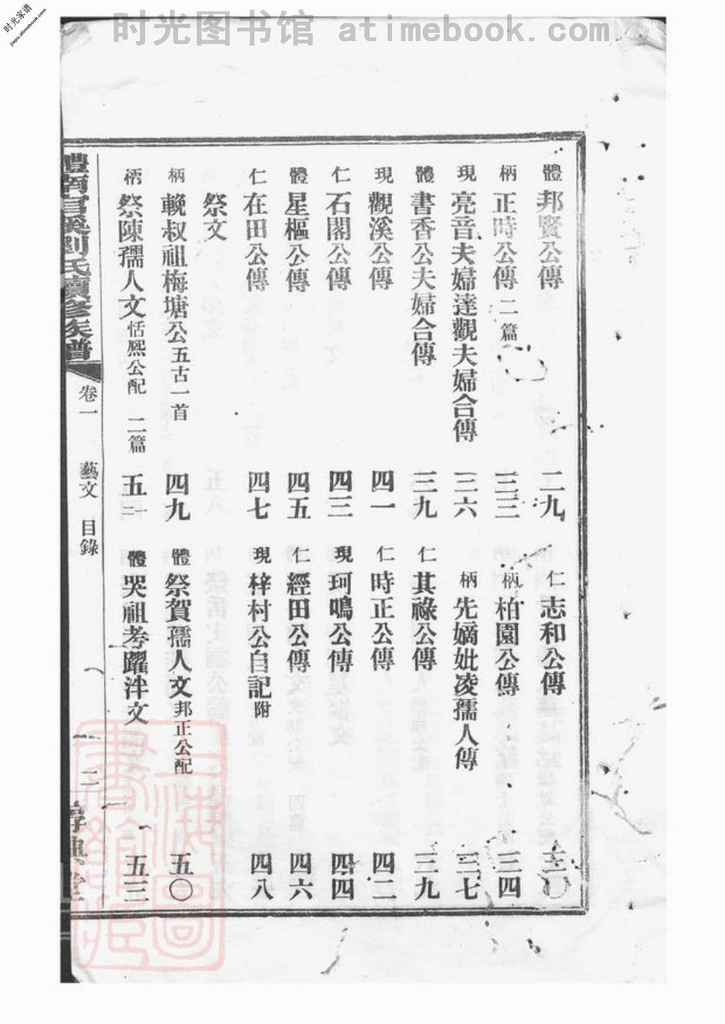 时光图书馆 atimebook.com
时光家谱
體 邦賢公傳 二九 仁 志和公傳 三〇
柄 正時公傳 二篇 三三 柄 柏園公傳 三四
現 亮音夫婦達觀夫婦合傳 三六 柄 先嫡妣凌孺人傳 三七
體 書香公夫婦合傳 三九 仁 其祿公傳 三九
現 觀溪公傳 四一 仁 時正公傳 四二
仁 石閣公傳 四三 現 珂鳴公傳 四四
體 星樞公傳 四五 仁 經田公傳 四六
仁 在田公傳 四七 現 梓村公自記 附 四八
祭文
柄 輓叔祖梅塘公五古一首 四九 體 祭賀孺人文 邦正公配 五〇
柄 祭陳孺人文 恬熙公配 二篇 五一 體 哭祖考躍泮文 五三
劉氏續修族譜 卷一 藝文 目錄 二